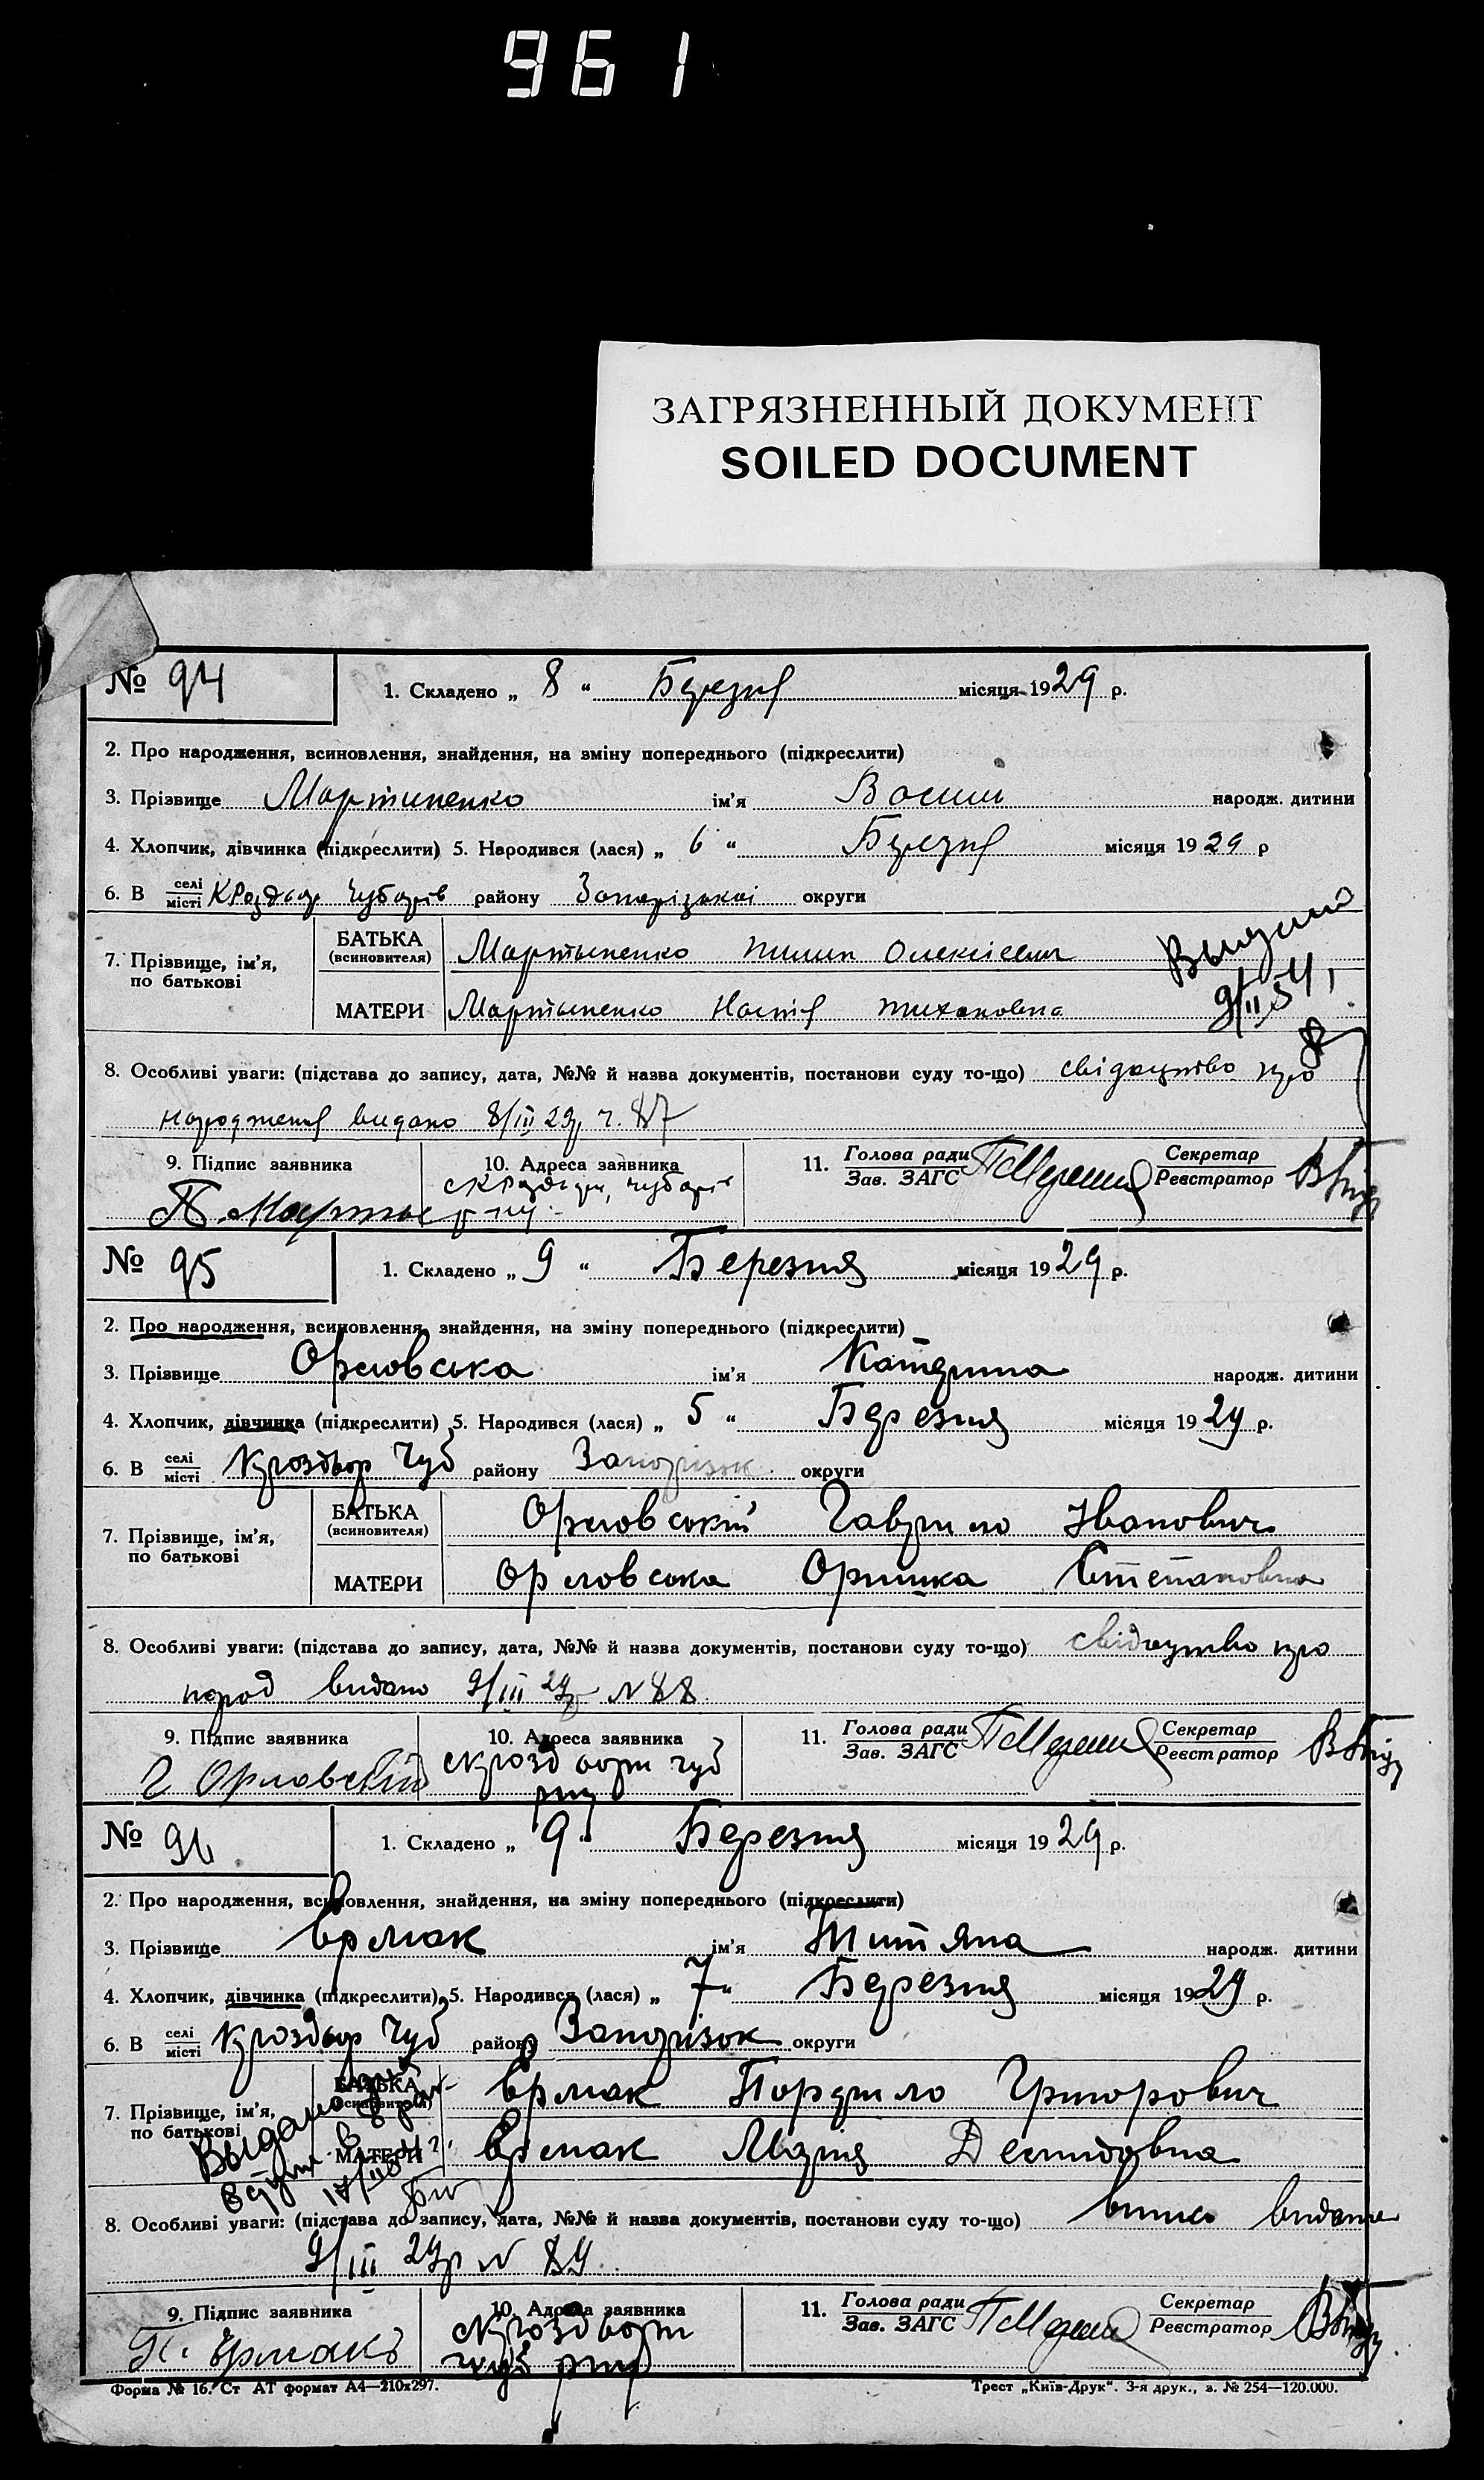 961
ЗАГРЯЗНЕННЫЙ ДОКУМЕНТ
SOILED DOCUMENT
№ 94
1. Складено „ 8 “ Березня місяця 1929 р.
2. Про народження, всиновлення, знайдення, на зміну попереднього (підкреслити)
3. Прізвище Мартиненко ім’я Васил народж. дитини
4. Хлопчик, дівчинка (підкреслити) 5. Народився (лася) „ 6 “ Березня місяця 1929 р
6. В селі/місті КРоздор Чубарів району Запорізької округи
7. Прізвище, ім’я, по батькові
БАТЬКА (всиновителя) Мартыненко Пилип Олексіевич
МАТЕРИ Мартыненко Настя Тихоновна
Выдано
9/II 54
8. Особливі уваги: (підстава до запису, дата, №№ й назва документів, постанови суду то-що) свідоцтво про
народження видано 8/III 29р ч. 87
9. Підпис заявника
10. Адреса заявника
11. Голова ради/Зав. ЗАГС
Секретар/Реєстратор
П. Марты
№ 95
1. Складено „ 9 “ Березня місяця 1929 р.
2. Про народження, всиновлення, знайдення, на зміну попереднього (підкреслити)
3. Прізвище Орловська ім’я Катерина народж. дитини
4. Хлопчик, дівчинка (підкреслити) 5. Народився (лася) „ 5 “ Березня місяця 1929 р.
6. В селі/місті Кроздор Чуб району Запорізьк округи
7. Прізвище, ім’я, по батькові
БАТЬКА (всиновителя) Орловський Гаврило Іванович
МАТЕРИ Орловська Оришка Степановна
8. Особливі уваги: (підстава до запису, дата, №№ й назва документів, постанови суду то-що) свідоцтво про
народ видано 9/III 29р N 88
9. Підпис заявника
10. Адреса заявника
11. Голова ради/Зав. ЗАГС
Секретар/Реєстратор
Г Орловский
чуб
№ 96
1. Складено „ 9 “ Березня місяця 1929 р.
2. Про народження, всиновлення, знайдення, на зміну попереднього (підкреслити)
3. Прізвище Єрмак ім’я Титяна народж. дитини
4. Хлопчик, дівчинка (підкреслити) 5. Народився (лася) „ 7 “ Березня місяця 1929 р.
6. В селі/місті Кроздор Чуб району Запорізьк округи
7. Прізвище, ім’я, по батькові
БАТЬКА (всиновителя) Єрмак Порфило Григорович
МАТЕРИ Єрмак Марія Демидовна
Выдано
8. Особливі уваги: (підстава до запису, дата, №№ й назва документів, постанови суду то-що) випис видане
9/III 29р N 89.
9. Підпис заявника
10. Адреса заявника
11. Голова ради/Зав. ЗАГС
Секретар/Реєстратор
П. Ермакъ
чуб
Форма № 16. Ст АТ формат А4—210х297.
Трест „Київ-Друк“. 3-я друк., з. № 254—120.000.